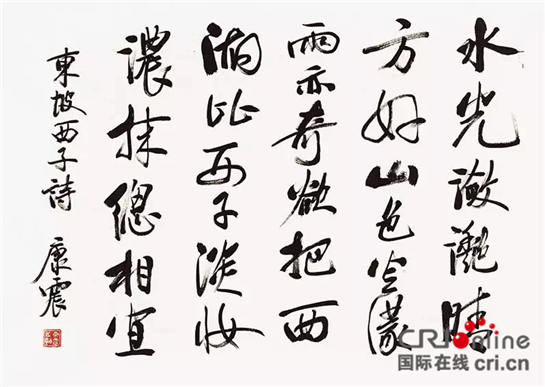 水光瀲灩晴
方好山色空濛
雨亦奇欲把西
湖比西子淡妝
濃抹總相宜
東坡西子詩 康震
CRIonline
国际在线 cri.cn